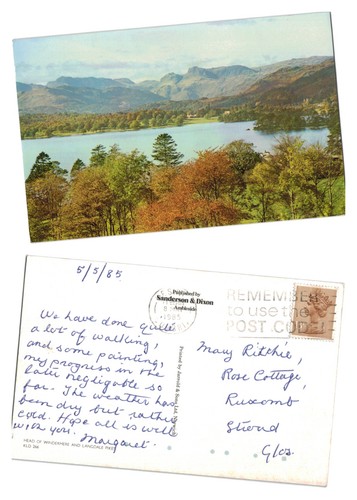 5/5/85
We have done quite
a lot of walking,
and some painting,
my progress in the
latter negligible so
far. The weather has
been dry but rather
cold. Hope all is well
with you. Margaret.
HEAD OF WINDERMERE AND LANGDALE PIKES
KLD 394
Published by
Sanderson & Dixon
Ambleside
Printed by Arnold & Ltd,
1985
REMEMBER
to use the
POST CODE
Mary Ritchie,
Rose Cottage,
Ruscomb
Stroud
Glos.